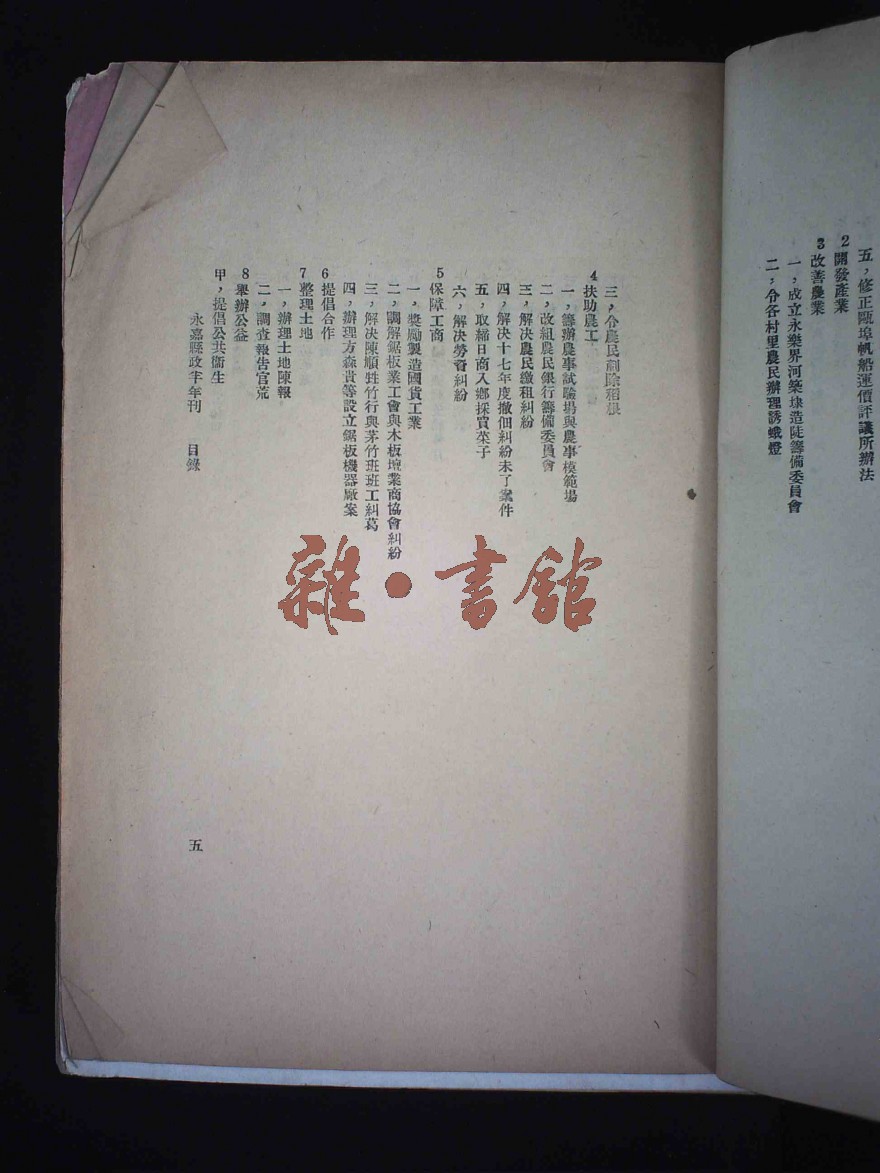 五，修正甌埠帆船運價評議所辦法
2開發產業
3改善農業
一，成立永樂界河築埭造陡籌備委員會
二，令各村里農民辦理誘蛾燈
三，令農民剷除稻根
4扶助農工
一，籌辦農事試驗場與農事模範場
二，改組農民銀行籌備委員會
三，解決農民繳租糾紛
四，解決十七年度撤佃糾紛未了案件
五，取締日商入鄉採買菜子
六，解決勞資糾紛
5保障工商
一，獎勵製造國貨工業
二，調解鋸板業工會與木板壇業商協會糾紛
三，解決陳順甡竹行與茅竹班班工糾葛
四，辦理方森貴等設立鋸板機器廠案
6提倡合作
7整理土地
一，辦理土地陳報
二，調查報告官荒
8舉辦公益
甲，提倡公共衞生
永嘉縣政半年刊　目錄
五
雜•書館